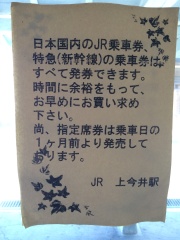 日本国内のJR乗車券、
特急(新幹線)の乗車券は
すべて発券できます。
時間に余裕をもって、
お早めにお買い求め
下さい。
尚、指定席券は乗車日の
1ヶ月前より発売して
おります。
JR 上今井駅